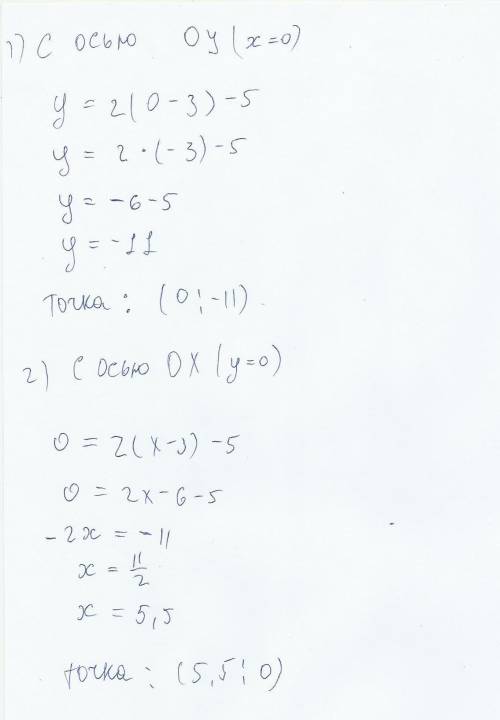 1) С осью ОУ (x=0)
y = 2(0-3)-5
y = 2·(-3)-5
y = -6-5
y = -11
точка: (0;-11)
2) С осью ОХ (y=0)
0 = 2(x-3)-5
0 = 2x-6-5
-2x = -11
x = 11/2
x = 5,5
точка: (5,5; 0)